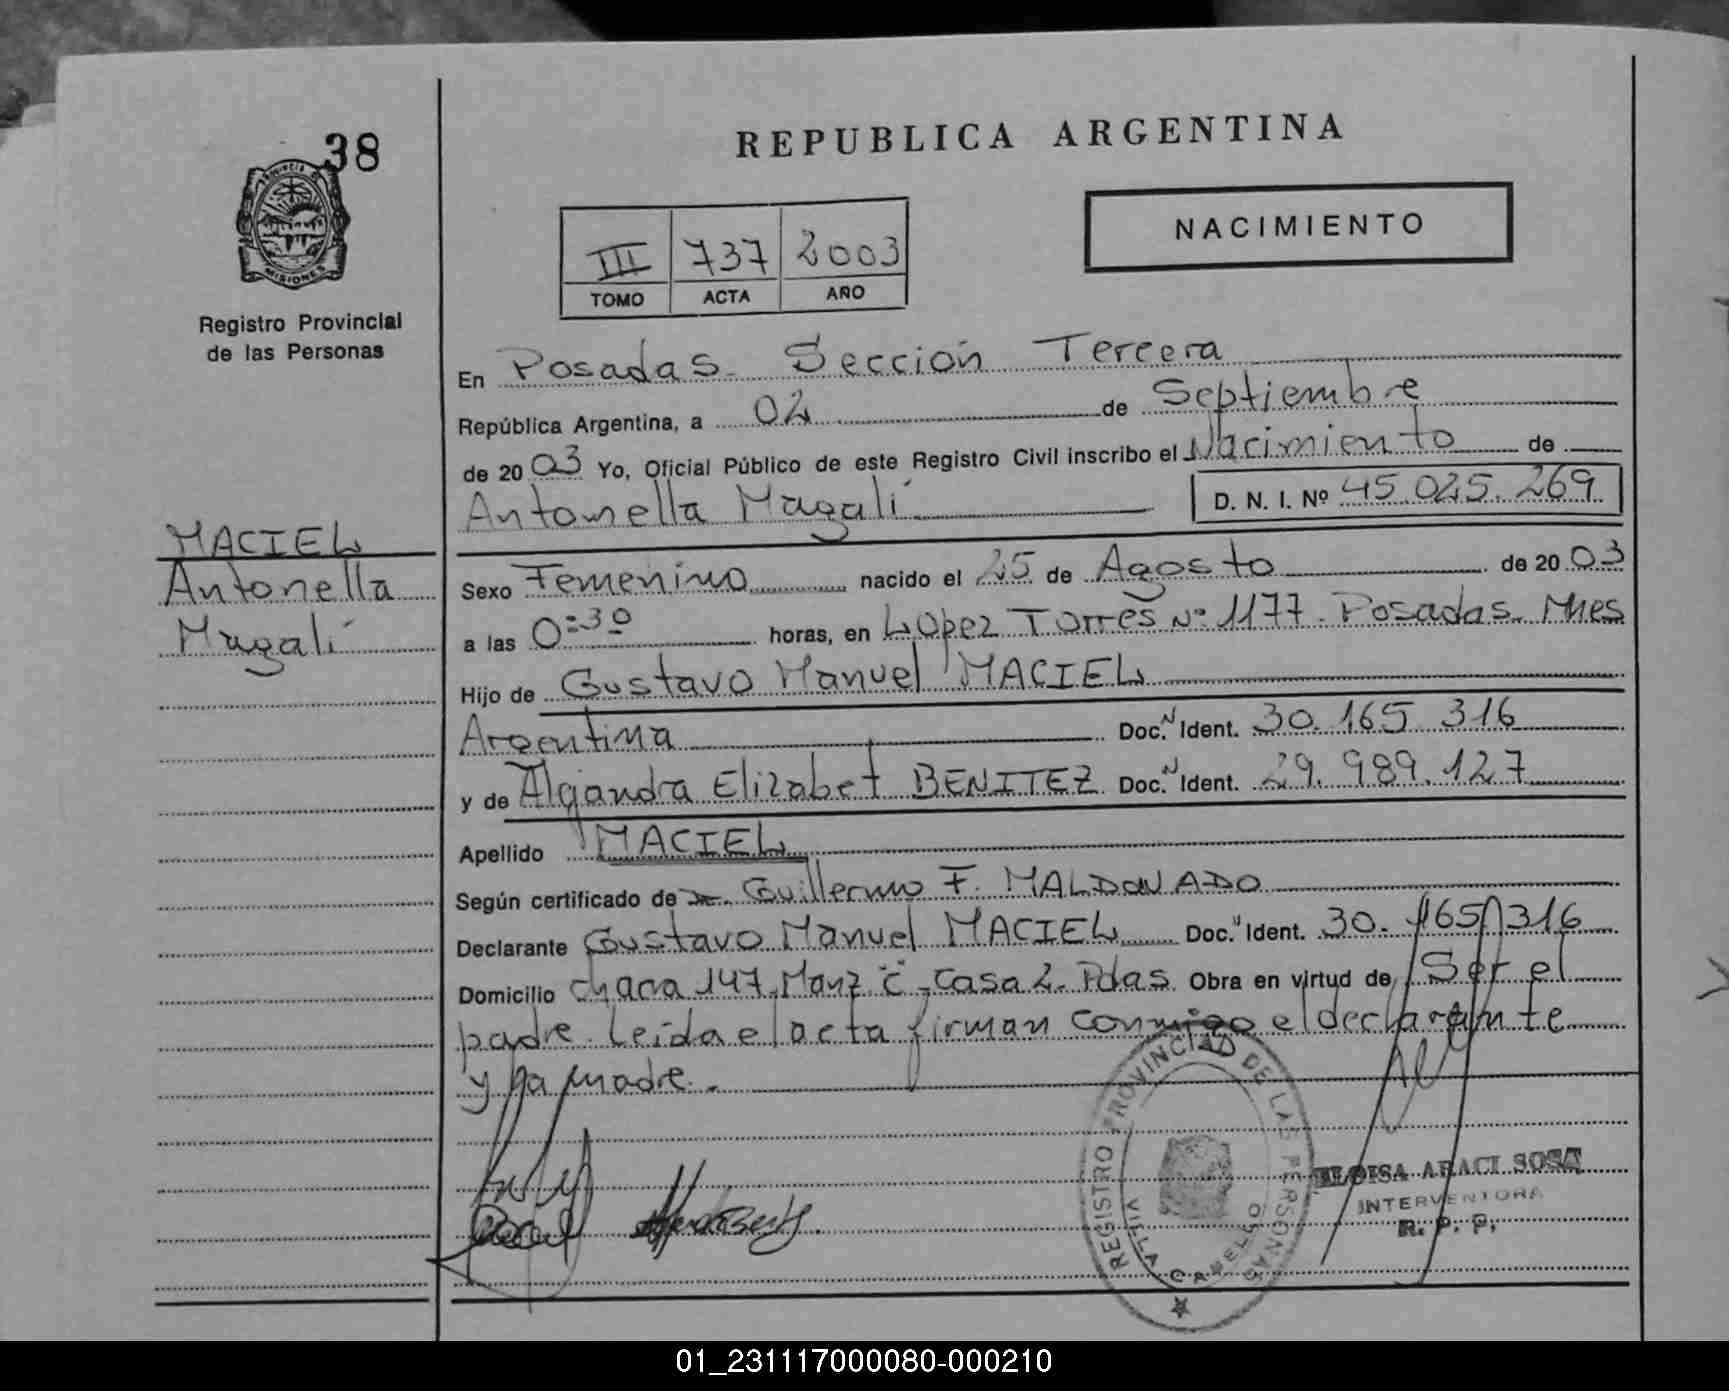 38
PROVINCIA DE
MISIONES
Registro Provincial
de las Personas
REPUBLICA ARGENTINA
III 737 2003
TOMO ACTA AÑO
NACIMIENTO
En Posadas. Sección Tercera
República Argentina, a 02 de Septiembre
de 2003 Yo, Oficial Público de este Registro Civil inscribo el Nacimiento de
Antonella Magalí D. N. I. Nº 45.025.269
MACIEL
Antonella
Magalí
Sexo Femenino nacido el 25 de Agosto de 2003
a las 0:30 horas, en Lopez Torres Nº 1177. Posadas. Mnes
Hijo de Gustavo Manuel MACIEL
Argentina Doc. N Ident. 30.165.316
y de Alejandra Elizabet BENITEZ Doc. N Ident. 29.989.127
Apellido MACIEL
Según certificado de Guillermo F. MALDONADO
Declarante Gustavo Manuel MACIEL Doc. N Ident. 30.165.316
Domicilio chacra 147. Manz "C". Casa 2. Pdas. Obra en virtud de Ser el
padre. Leída el acta firman conmigo el declarante
y la madre.
REGISTRO PROVINCIAL DE LAS PERSONAS
VILLA CABELLO
ELOISA ARACI SOSA
INTERVENTORA
R. P. P.
01_231117000080-000210